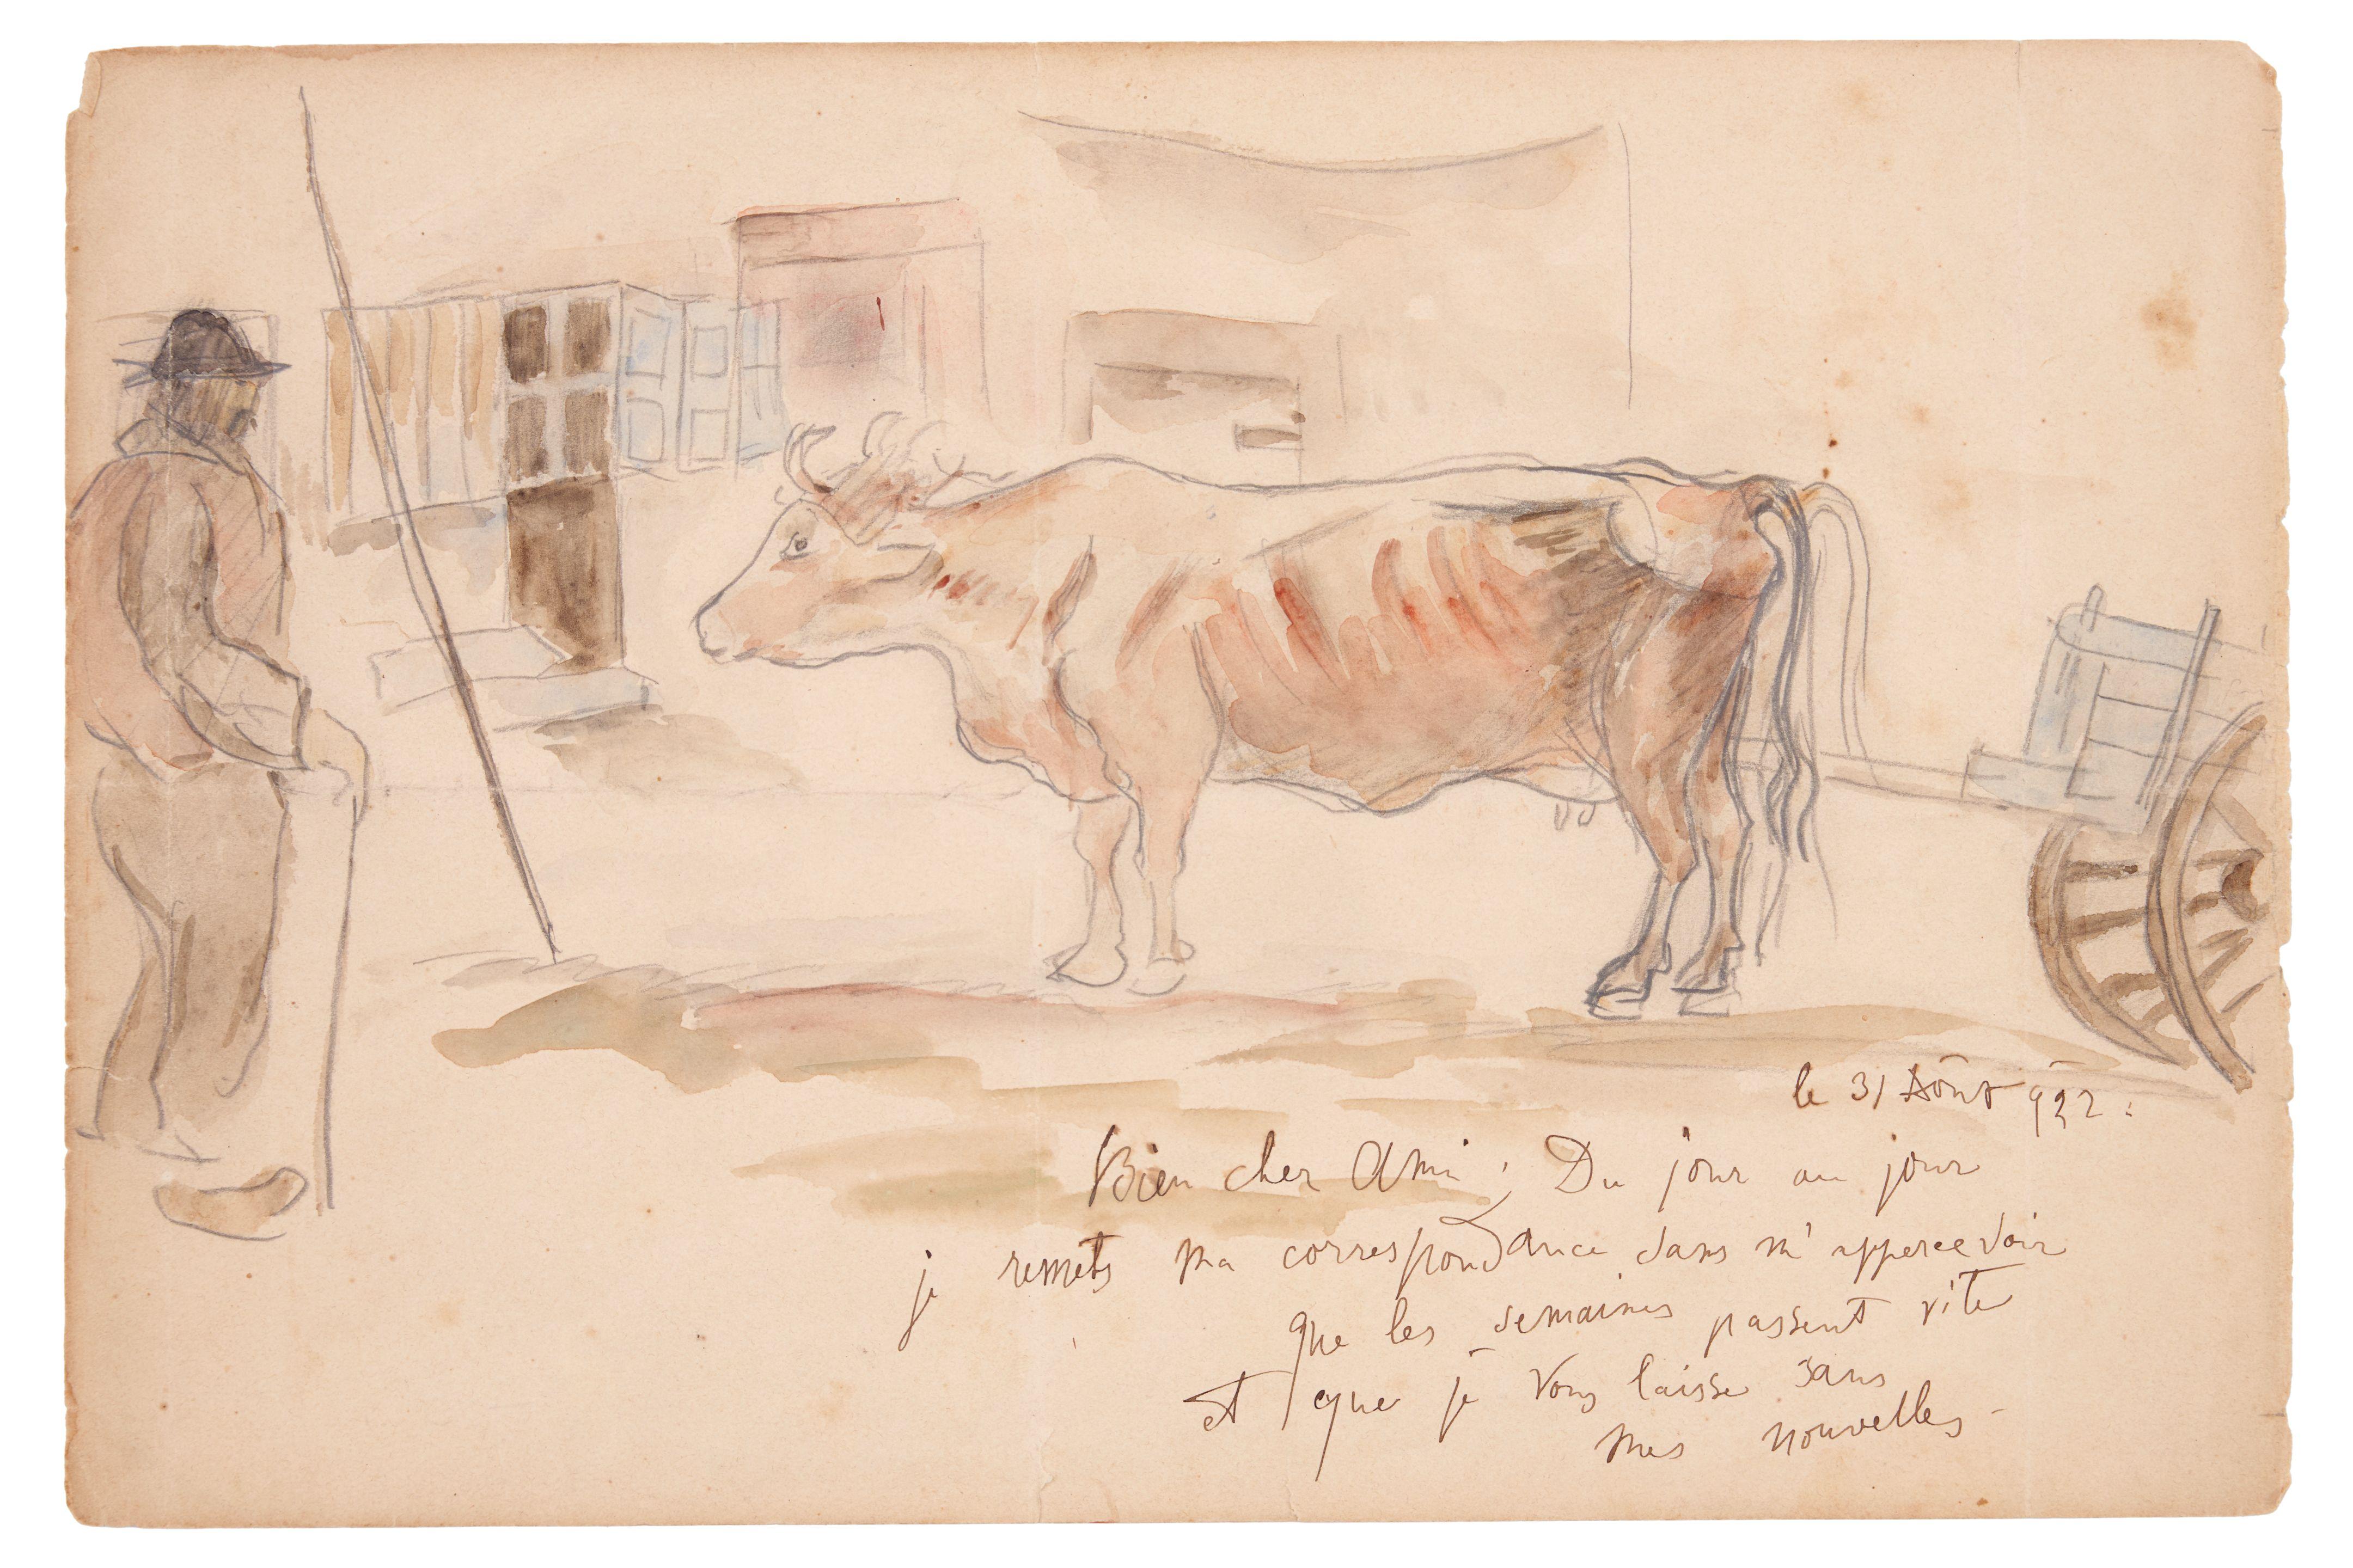 le 31 Août 922.
Bien cher Ami; Du jour au jour
je remets ma correspondance sans m'appercevoir
que les semaines passent vite
et que je vous laisse sans
mes nouvelles-